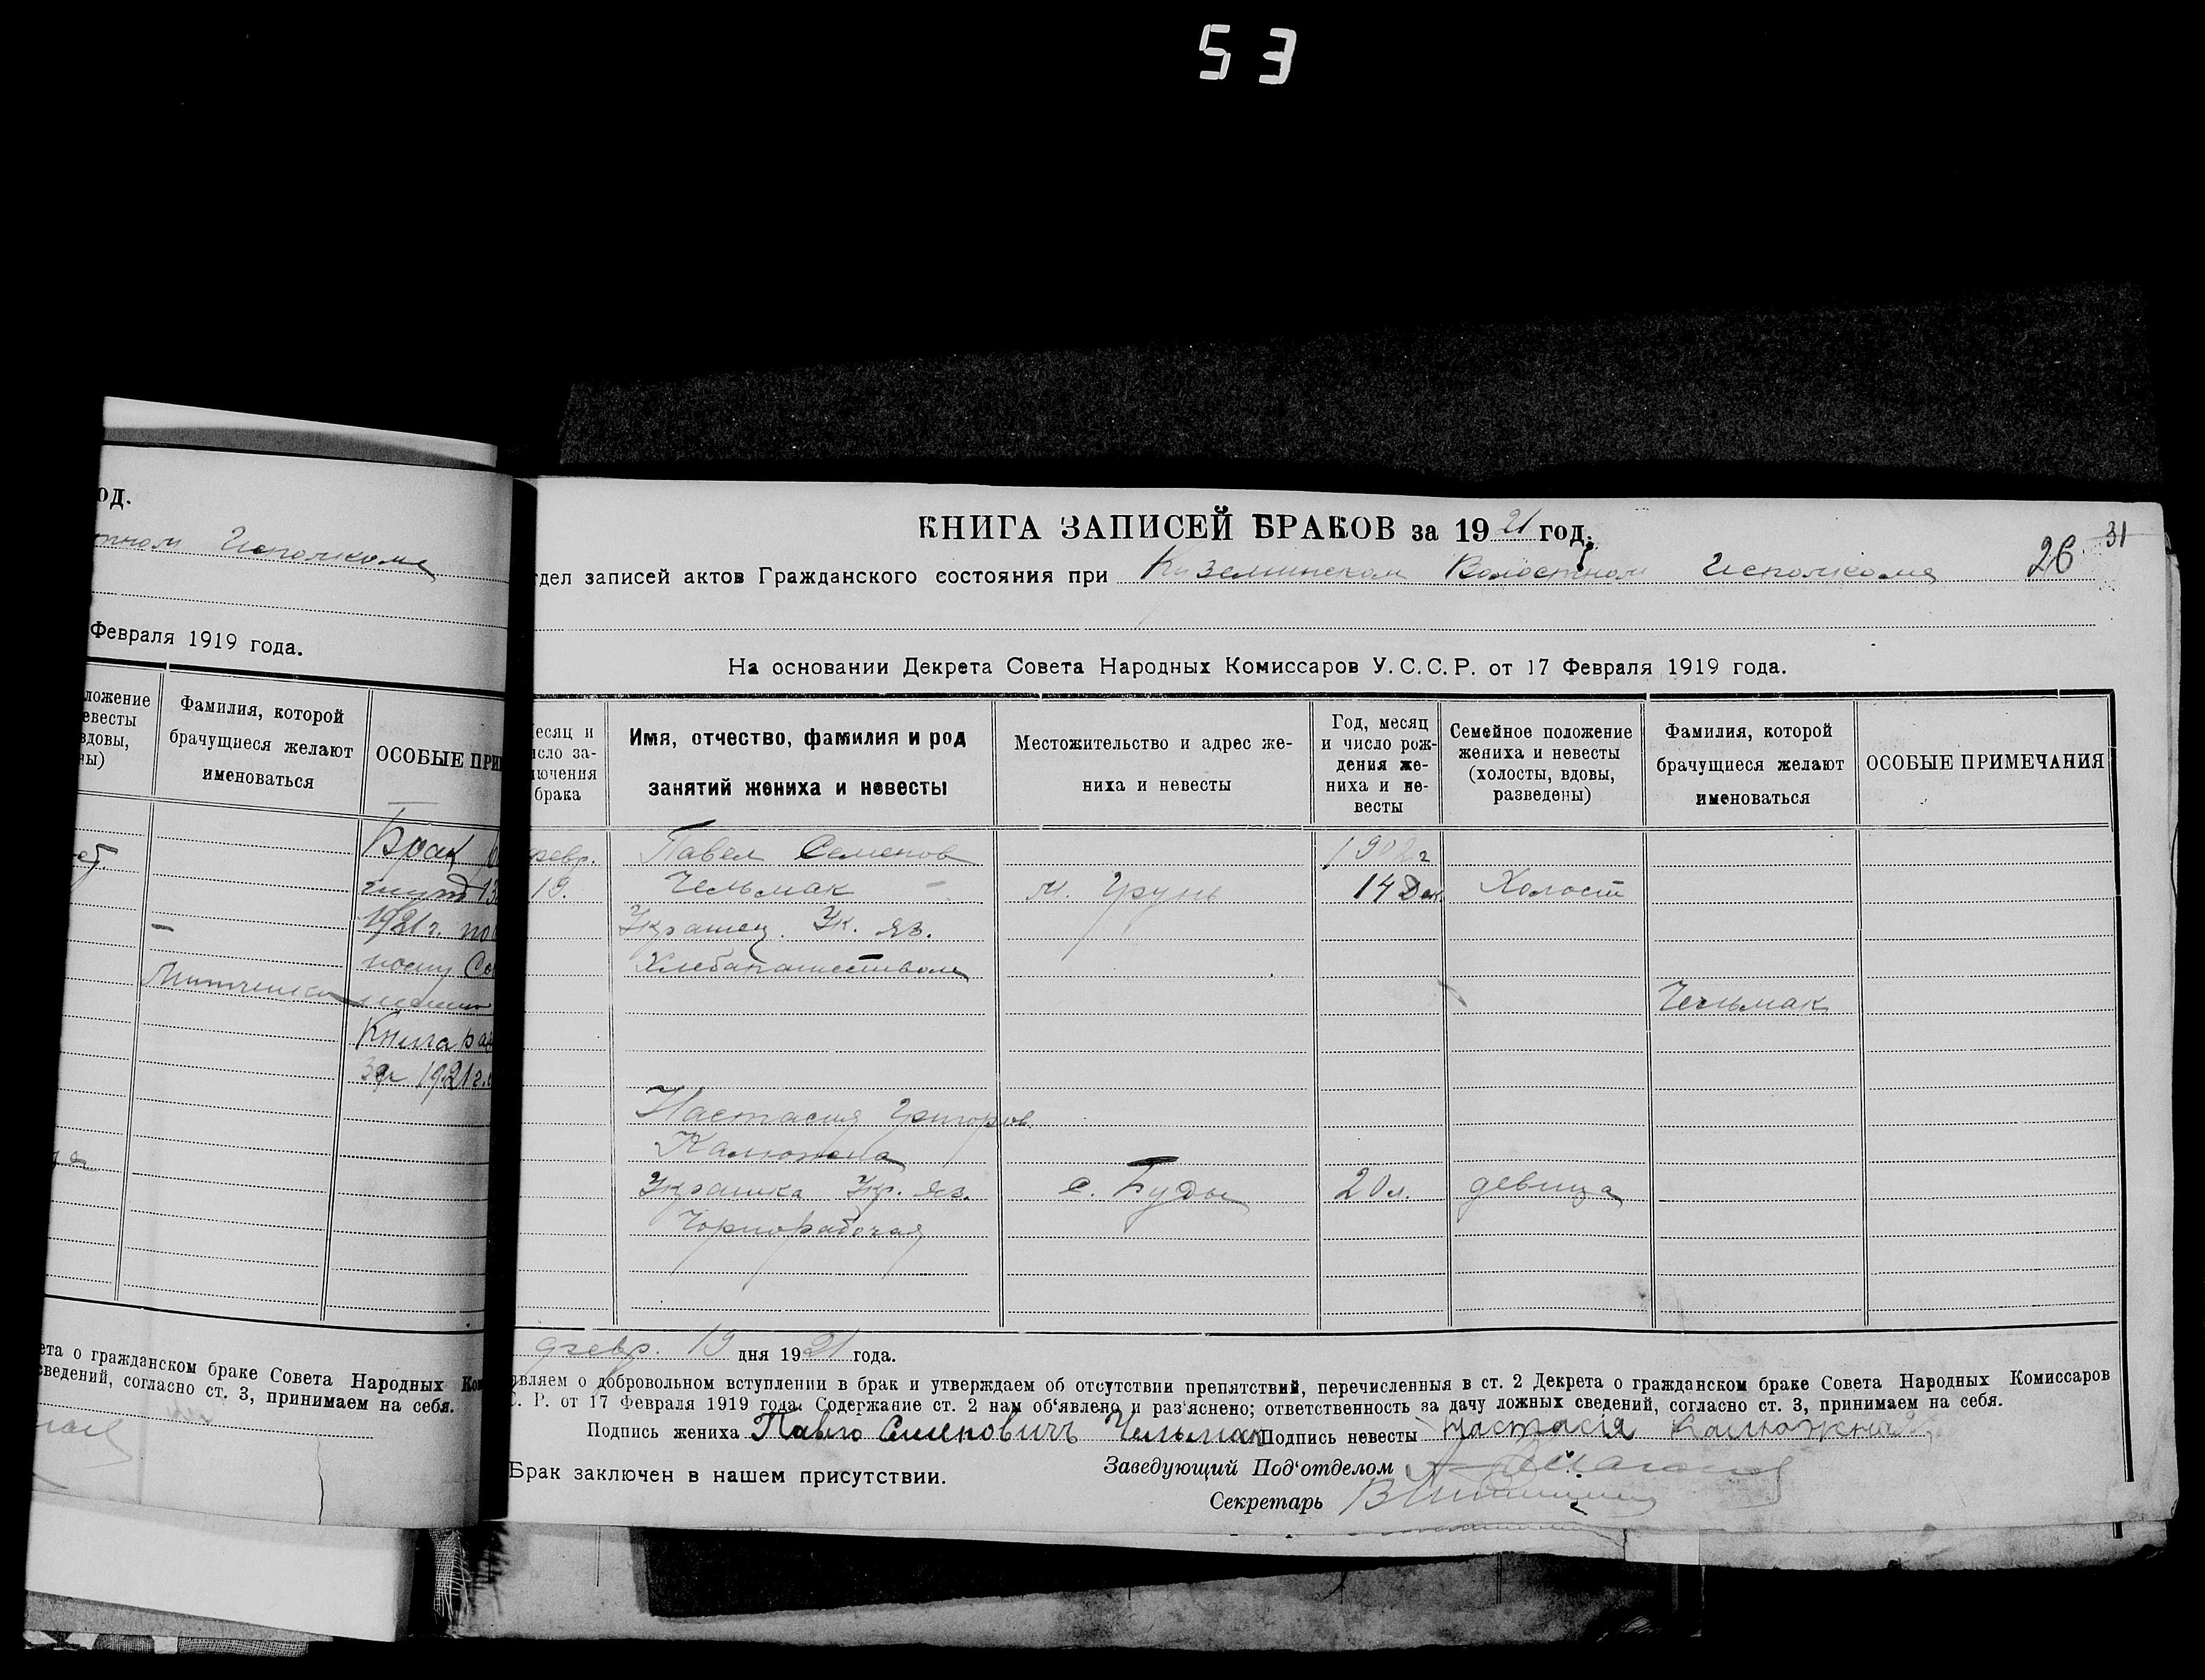 53
од.
Исполкоме
Февраля 1919 года.
ложение
евесты
вдовы,
ны)
Фамилия, которой
брачущиеся желают
именоваться
ОСОБЫЕ ПРИ
Брак
13
1921 г. по
Книга
за 1921 г.
ета о гражданском браке Совета Народных Ко
сведений, согласно ст. 3, принимаем на себя.
КНИГА ЗАПИСЕЙ БРАКОВ за 1921 год.
26 31
тдел записей актов Гражданского состояния при Волостном Исполкоме
На основании Декрета Совета Народных Комиссаров У.С.С.Р. от 17 Февраля 1919 года.
есяц и
исло за-
ючения
брака
Имя, отчество, фамилия и род
занятий жениха и невесты
Местожительство и адрес же-
ниха и невесты
Год, месяц
и число рож-
дения же-
ниха и не-
весты
Семейное положение
жениха и невесты
(холосты, вдовы,
разведены)
Фамилия, которой
брачущиеся желают
именоваться
ОСОБЫЕ ПРИМЕЧАНИЯ
февр. Павел Семенов 1902 г
19. Чельмак м. Грунь 14 Дек. Холост
Украинец. Ук. яз.
Хлебапашеством
Чельмак
Настасия Григоров.
Калюжна
Украинка Укр. яз. с. Буды 20 л. девица
Чорнорабочая
февр. 19 дня 1921 года.
вляем о добровольном вступлении в брак и утверждаем об отсутствии препятствий, перечисленныя в ст. 2 Декрета о гражданском браке Совета Народных Комиссаров
С. Р. от 17 Февраля 1919 года. Содержание ст. 2 нам об'явлено и раз'яснено; ответственность за дачу ложных сведений, согласно ст. 3, принимаем на себя.
Подпись жениха Павло Семеновичъ Чельмак Подпись невесты Настасія Калюжна
Брак заключен в нашем присутствии.
Заведующий Под'отделом
Секретарь